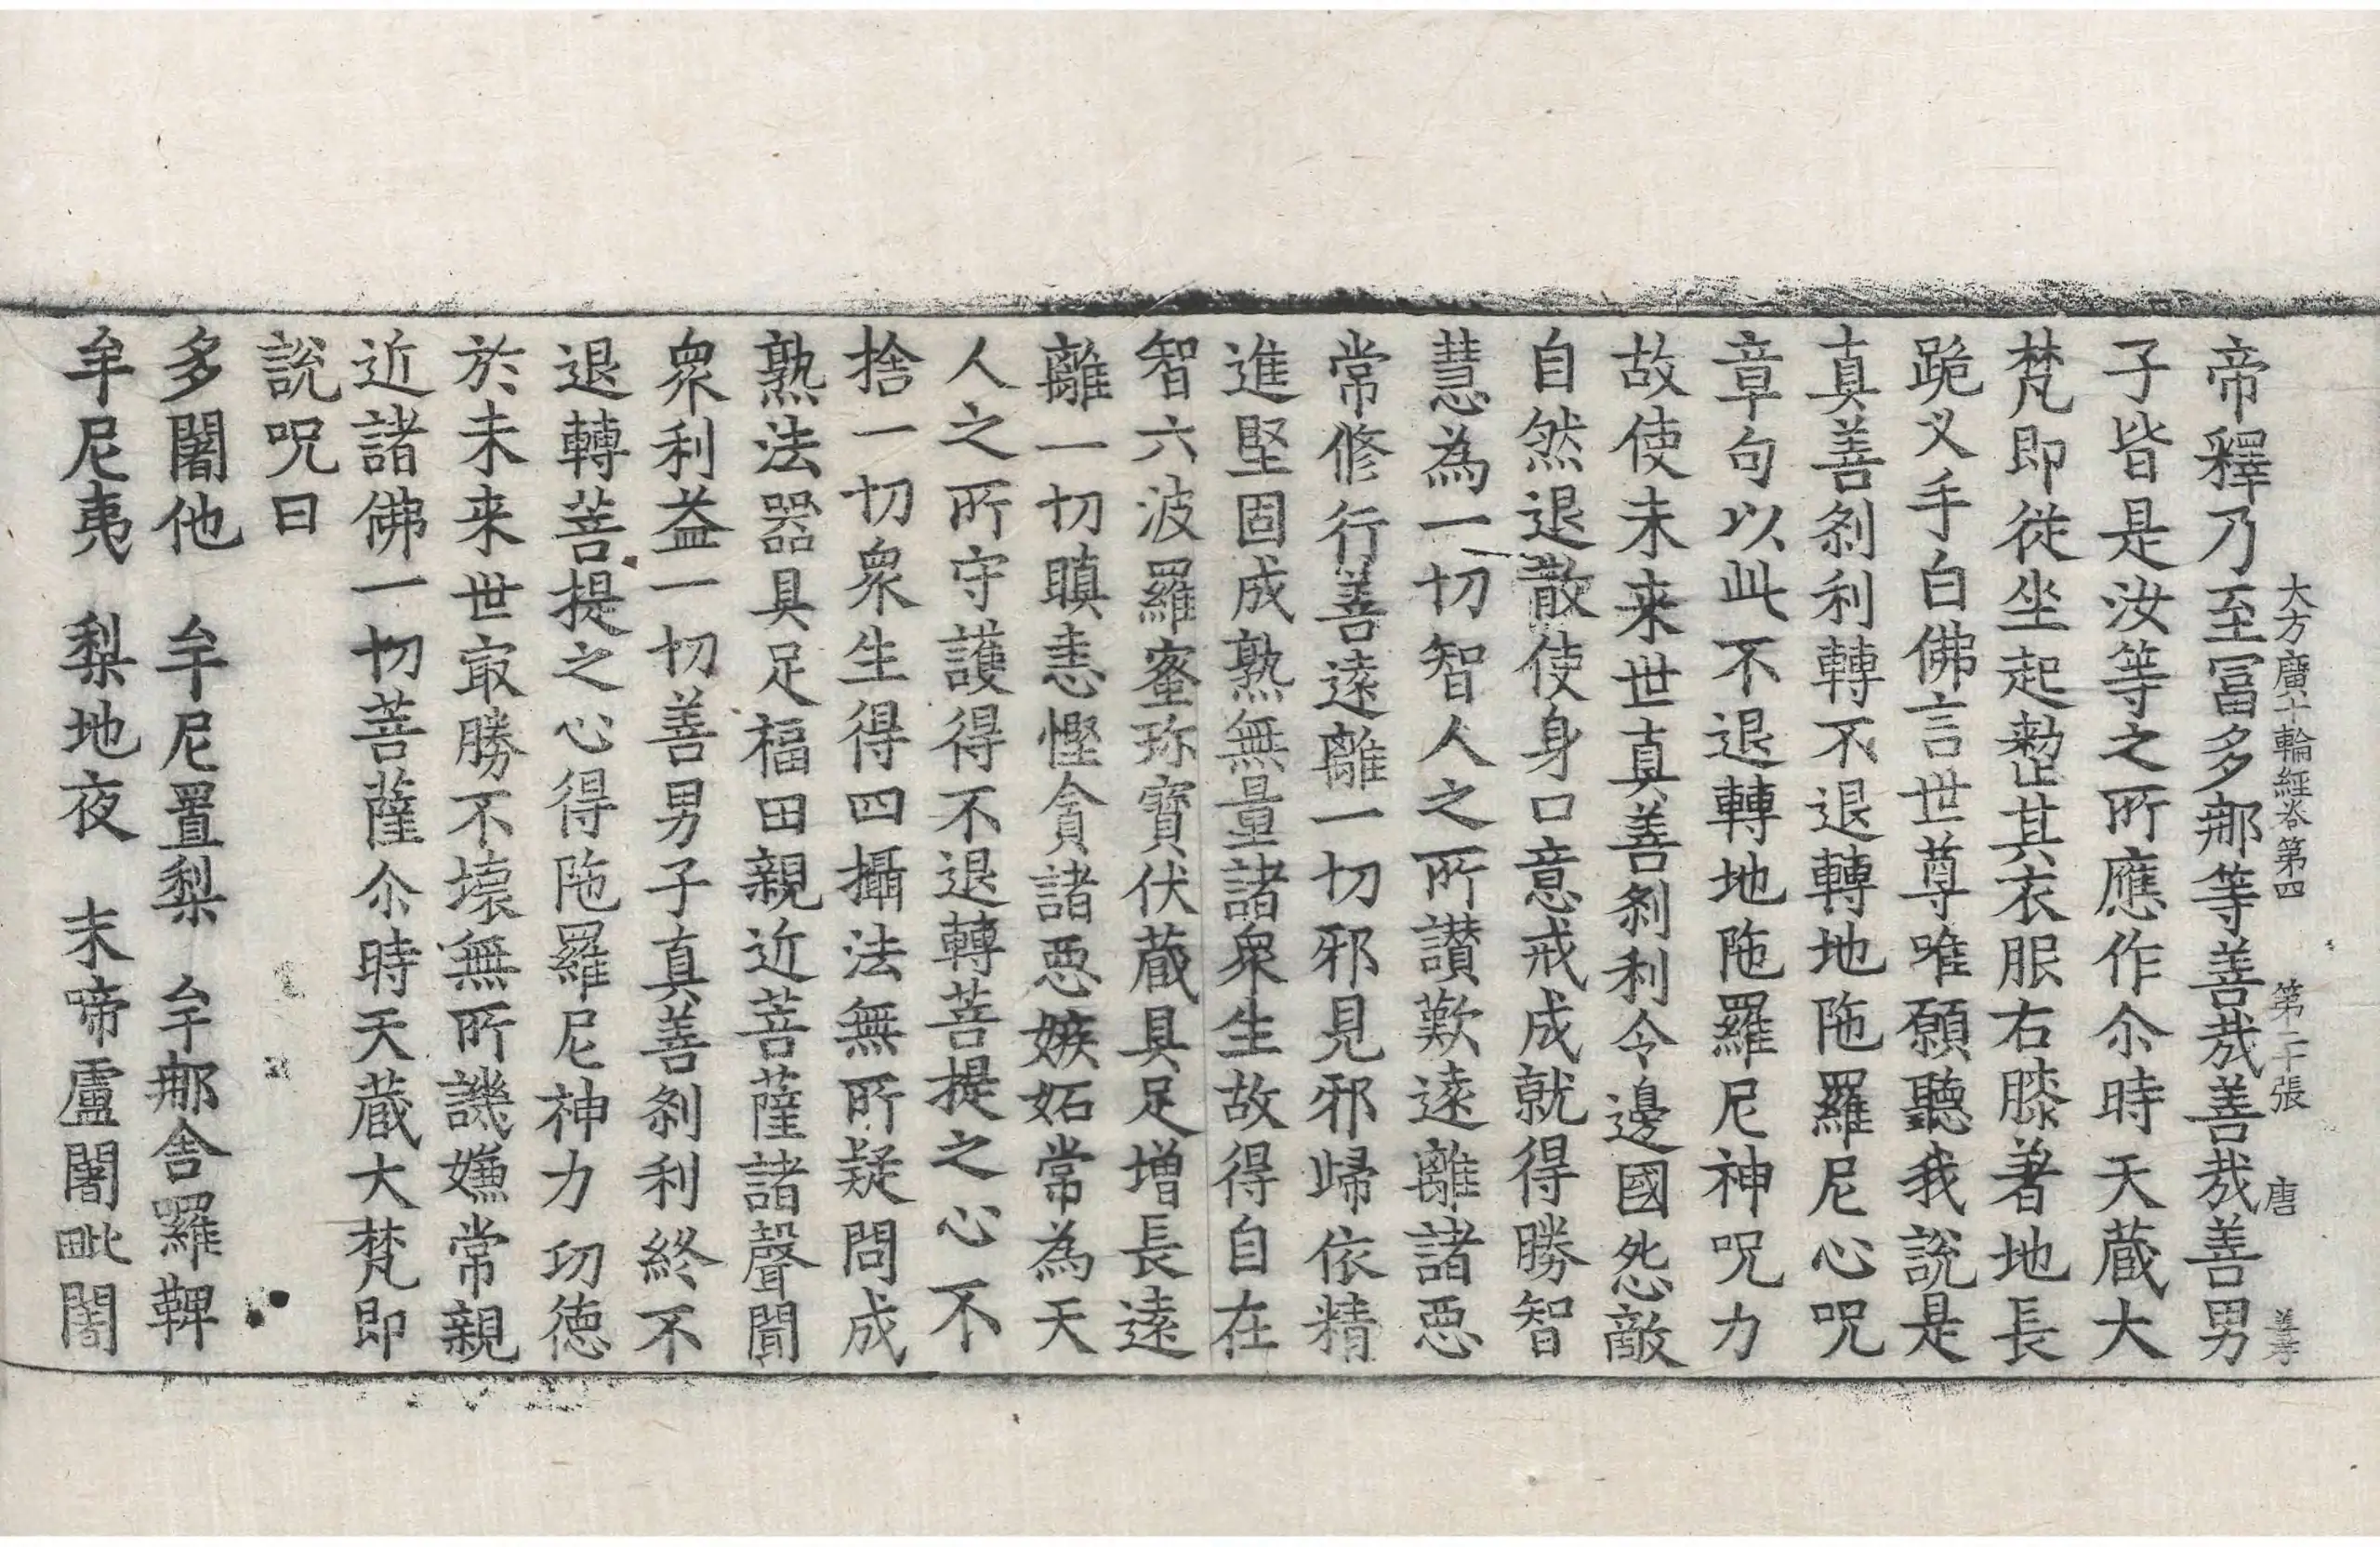 大方廣十輪經卷第四 第二十張 唐
帝釋乃至冨多那等善㢤善㢤善男
子皆是汝等之所應作尒時天蔵大
梵即從坐起整其衣服右膝著地長
跪叉手白佛言世尊唯願聽我說是
真善剎利轉不退轉地陁羅尼心呪
章句以此不退轉地陁羅尼神呪力
故使未来世真善剎利令邊國怨敵
自然退散使身口意戒成就得勝智
慧為一切智人之所讃歎遠離諸惡
常修行善遠離一切邪見邪歸依精
進堅固成熟無量諸衆生故得自在
智六波羅蜜珎寶伏蔵具足增長遠
離一切瞋恚慳貪諸惡嫉妬常為天
人之所守護得不退轉菩提之心不
捨一切衆生得四攝法無所疑問成
熟法器具足福田親近菩薩諸聲聞
衆利益一切善男子真善剎利終不
退轉菩提之心得陁羅尼神力功德
於未来世㝡勝不壞無所譏嫌常親
近諸佛一切菩薩尒時天蔵大梵即
說呪曰
多闍他 牟尼置梨 牟那舍羅鞞
牟尼夷 梨地夜 末啼盧闍毗闍